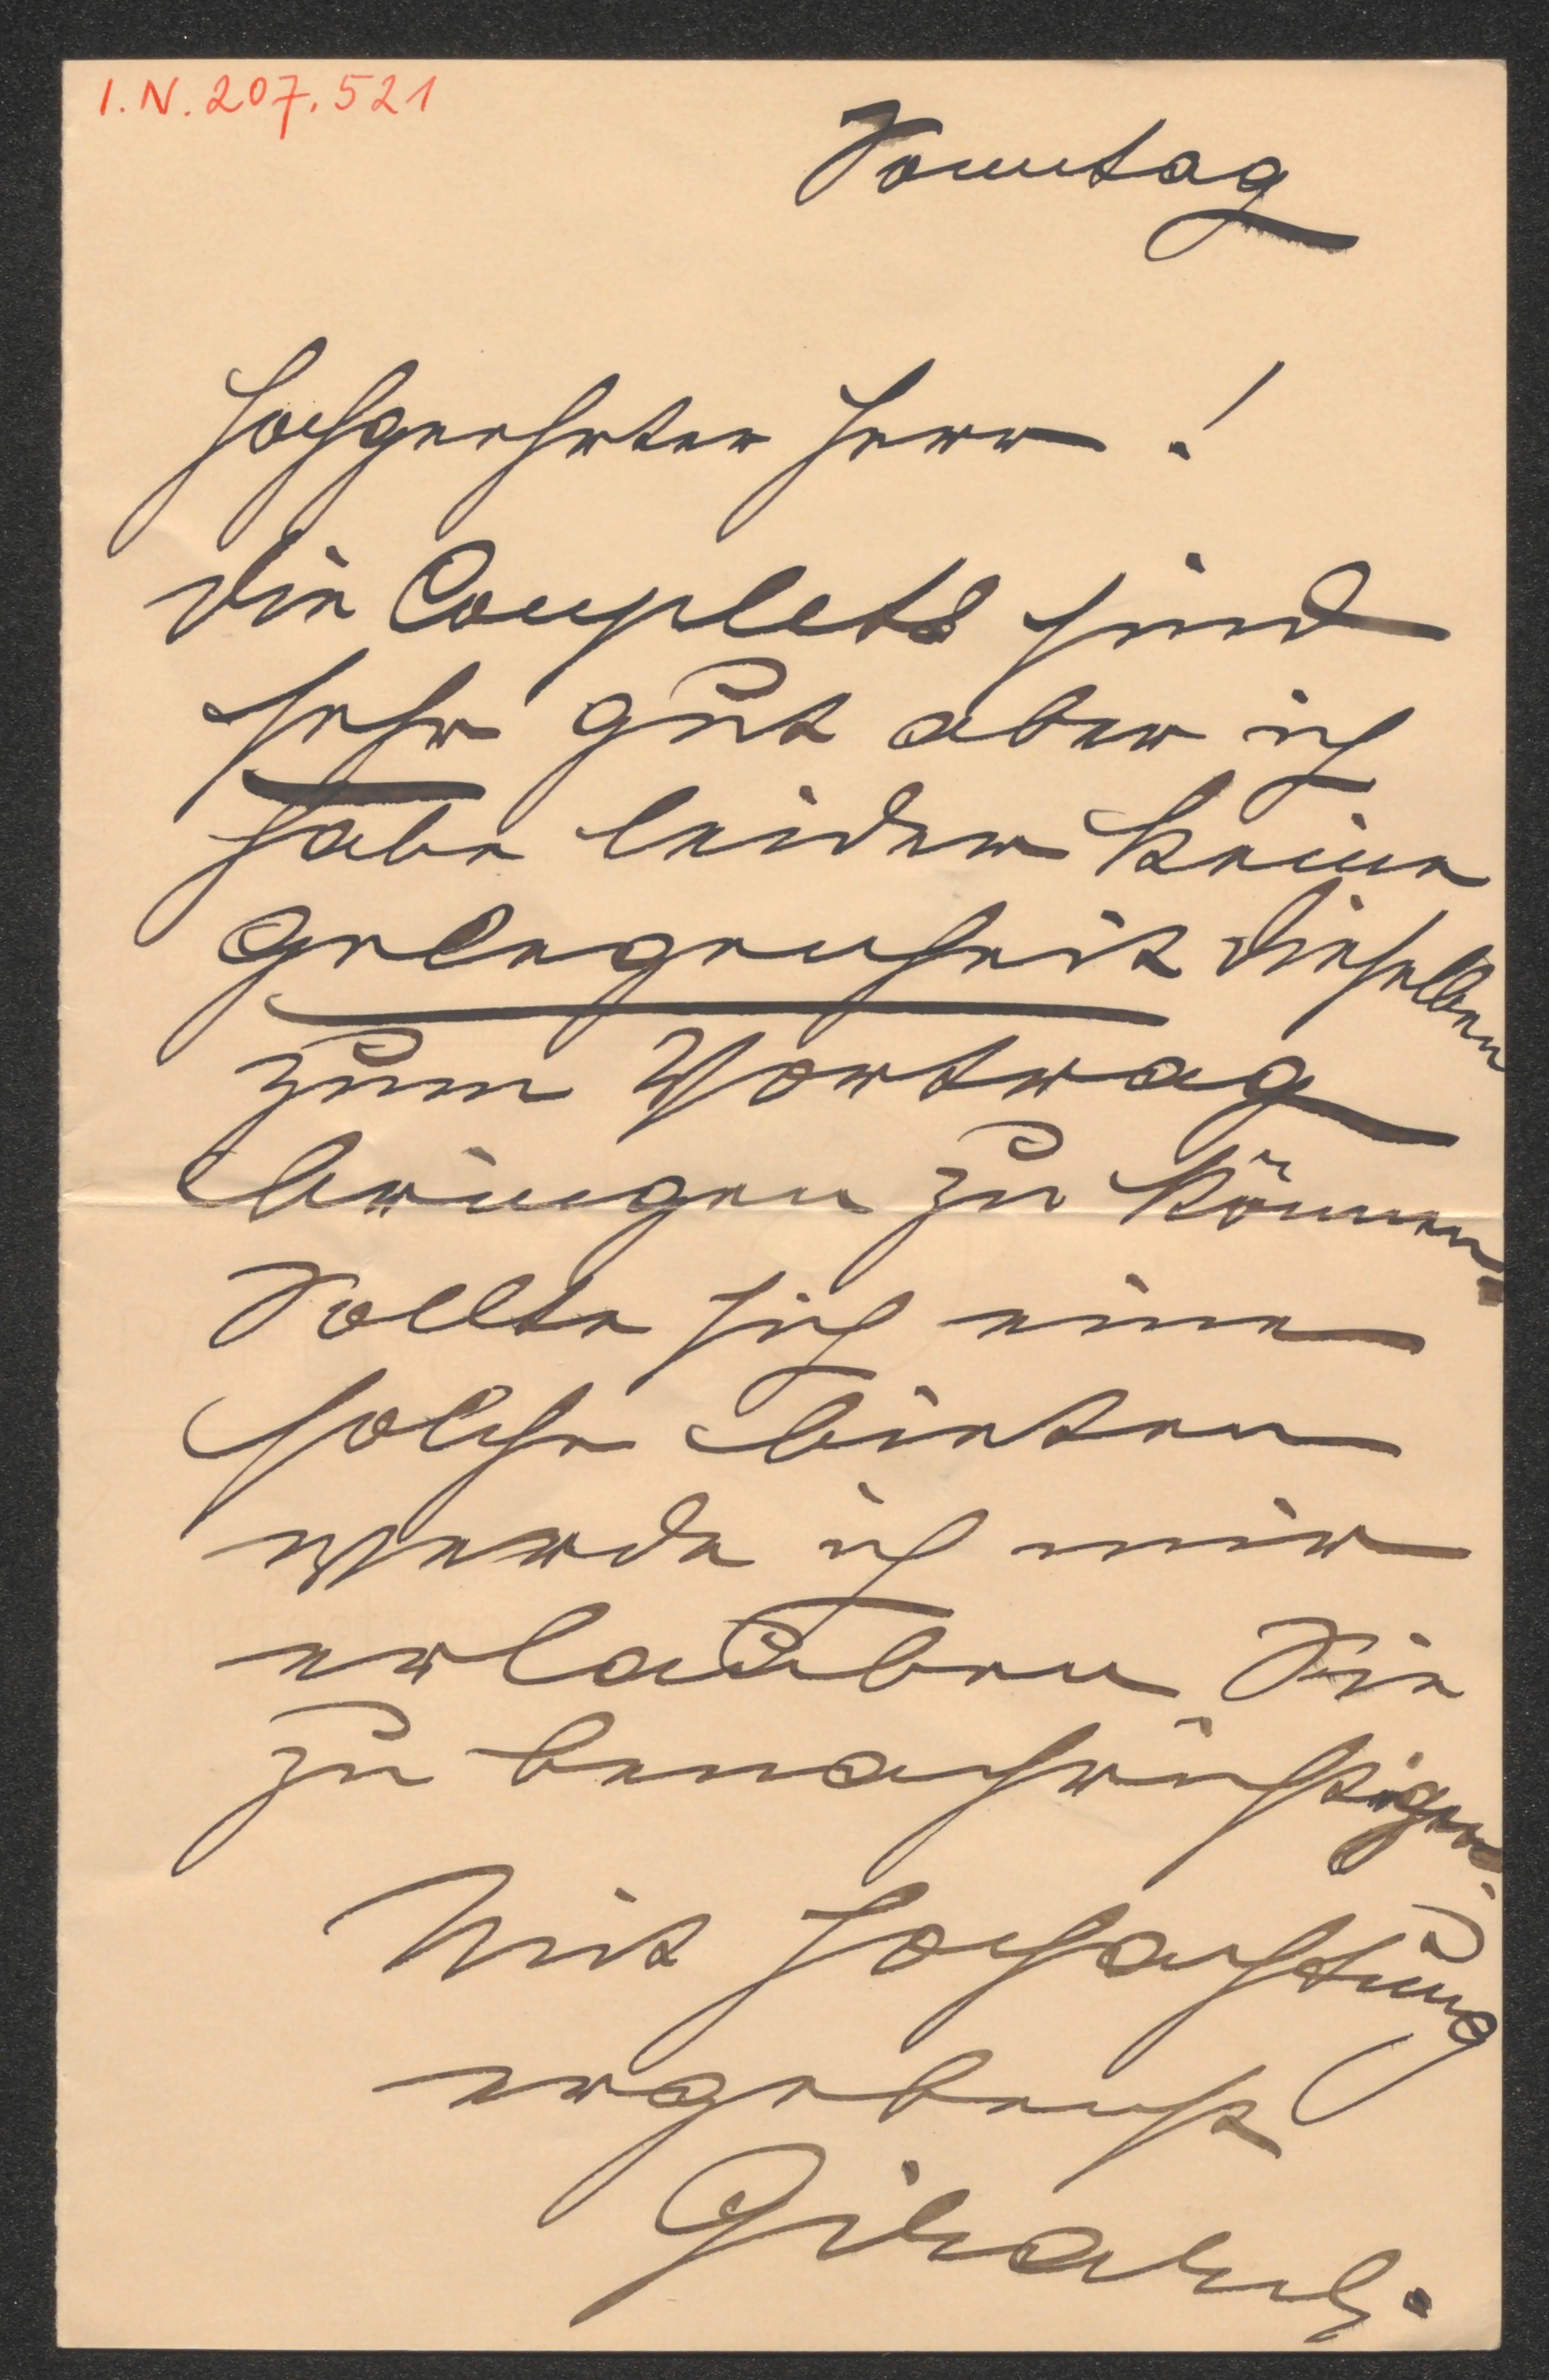 I.N. 207.521
Sonntag
Hochgeehrter Herr!
die Couplets sind
sehr gut aber ich
habe leider keine
Gelegenheit dieselben
zum Vortrag
bringen zu können.
Sollte sich eine
solche bieten
werde ich mir
erlauben Sie
zu benachrichtigen.
Mit Hochachtung
ergebenst
Girardi.